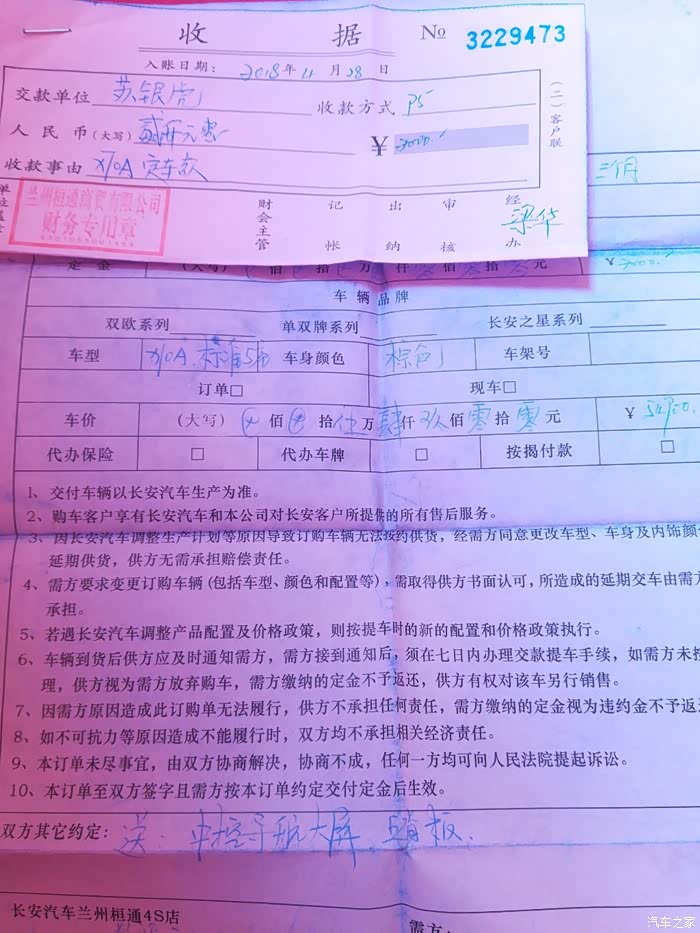 收 据 № 3229473
入账日期: 2018年4月28日
交款单位 苏银虎 收款方式 PS
人民币(大写) 贰仟元整 ¥ 2000.
收款事由 X70A 定车款
(二)客户联
三个月
兰州桓通商贸有限公司
财务专用章
财会主管 记帐 出纳 审核 经办 梁华
定金 (大写) 佰 拾 万 仟 佰 零 拾 零 元 ¥2000.
车辆品牌
双欧系列 单双牌系列 长安之星系列
车型 X70A.标准5座 车身颜色 棕色 车架号
订单□ 现车□
车价 (大写) 佰 拾 伍 万 肆 仟 玖 佰 零 拾 零 元 ¥54900.
代办保险 □ 代办车牌 □ 按揭付款 □
1、交付车辆以长安汽车生产为准。
2、购车客户享有长安汽车和本公司对长安客户所提供的所有售后服务。
3、因长安汽车调整生产计划等原因导致订购车辆无法按约供货，经需方同意更改车型、车身及内饰颜
延期供货，供方无需承担赔偿责任。
4、需方要求变更订购车辆(包括车型、颜色和配置等)，需取得供方书面认可，所造成的延期交车由需方
承担。
5、若遇长安汽车调整产品配置及价格政策，则按提车时的新的配置和价格政策执行。
6、车辆到货后供方应及时通知需方，需方接到通知后，须在七日内办理交款提车手续，如需方未按
理，供方视为需方放弃购车，需方缴纳的定金不予返还，供方有权对该车另行销售。
7、因需方原因造成此订购单无法履行，供方不承担任何责任，需方缴纳的定金视为违约金不予返
8、如不可抗力等原因造成不能履行时，双方均不承担相关经济责任。
9、本订单未尽事宜，由双方协商解决，协商不成，任何一方均可向人民法院提起诉讼。
10、本订单至双方签字且需方按本订单约定交付定金后生效。
双方其它约定: 送: 中控导航大屏、踏板.
长安汽车兰州桓通4S店
需方:
汽车之家